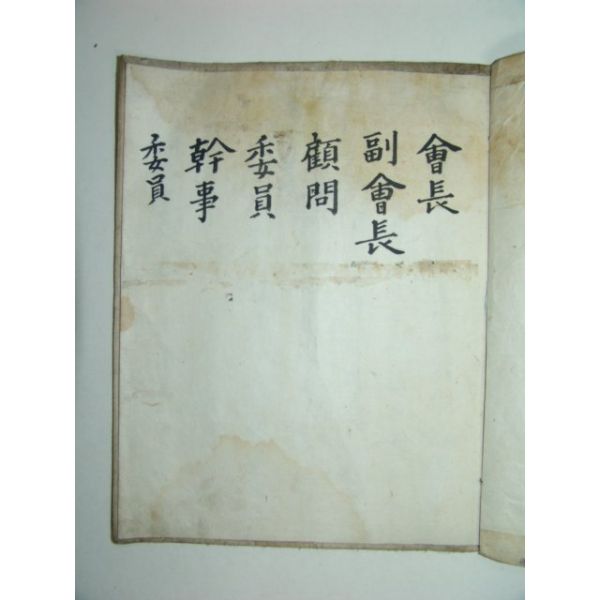 會長
副會長
顧問
委員
幹事
委員